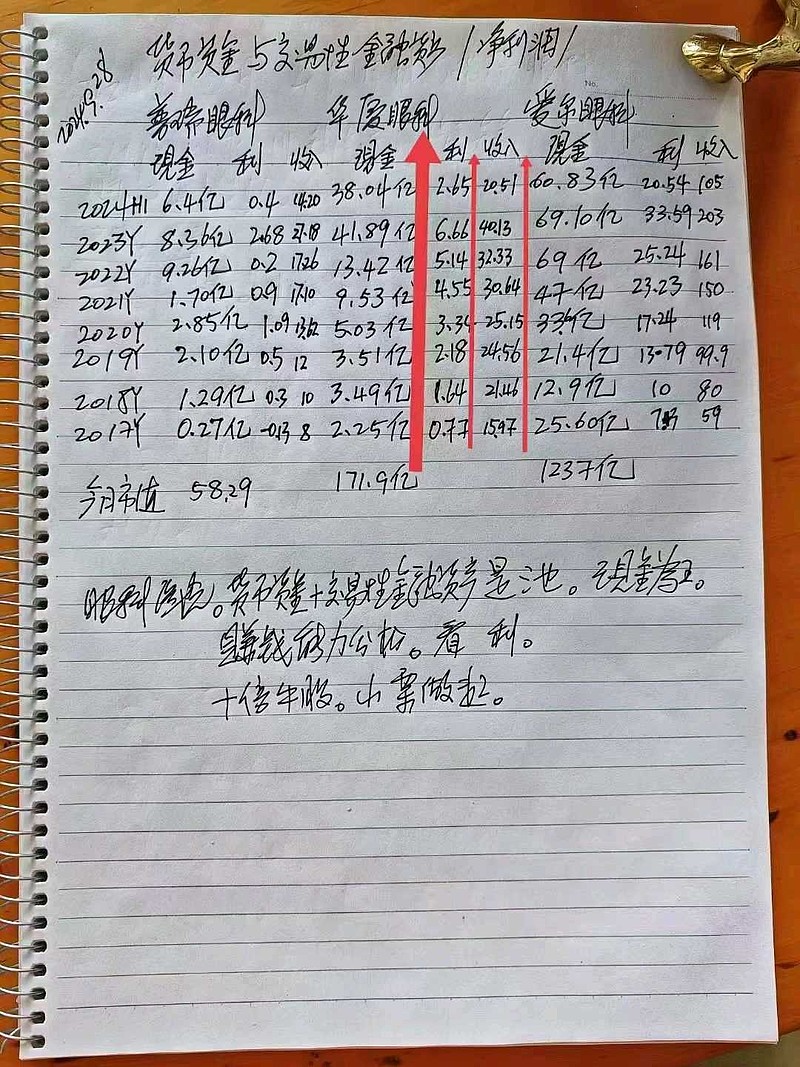 2024.9.28
货币资金与交易性金融资产/净利润/
No.
普瑞眼科 华厦眼科 爱尔眼科
现金 利 收入 现金 利 收入 现金 利 收入
2024H1 6.4亿 0.4 14.20 38.04亿 2.65 20.51 60.83亿 20.54 105
2023Y 8.36亿 2.68 27.18 41.89亿 6.66 40.13 69.10亿 33.59 203
2022Y 9.26亿 0.2 17.26 13.42亿 5.14 32.33 69亿 25.24 161
2021Y 1.70亿 0.9 17.10 9.53亿 4.55 30.64 47亿 23.23 150
2020Y 2.85亿 1.09 13.62 5.03亿 3.34 25.15 亿 17.24 119
2019Y 2.10亿 0.5 12 3.51亿 2.18 24.56 21.4亿 13.79 99.9
2018Y 1.29亿 0.3 10 3.49亿 1.64 21.46 12.9亿 10 80
2017Y 0.27亿 -0.13 8 2.25亿 0.77 15.97 25.60亿 59
今日市值 58.29 171.9亿 1237亿
眼科医院。货币资金+交易性金融资产是池。现金为王。
赚钱能力分析。看利。
十倍牛股。小票做起。